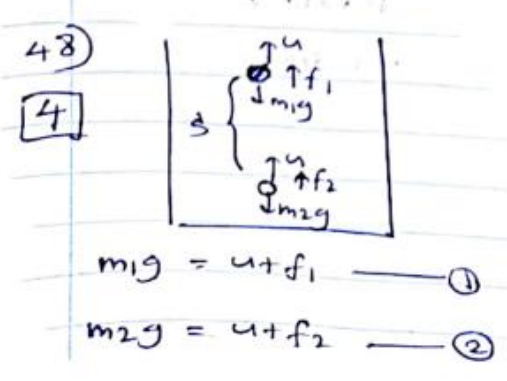 48)
4
u
↑f1
↓m1g
s
u
↑f2
↓m2g
m1g = u+f1 ——— ①
m2g = u+f2 ——— ②